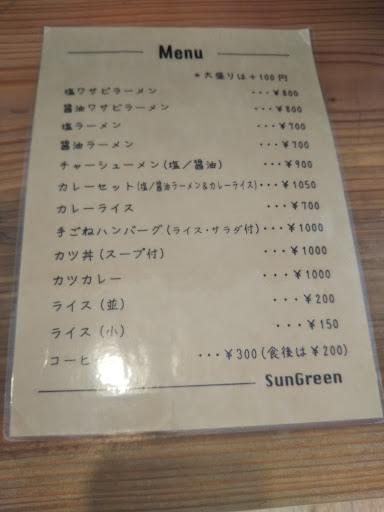 Menu
*大盛りは+100円
塩ワサビラーメン ・・・¥800
醤油ワサビラーメン ・・・¥800
塩ラーメン ・・・¥700
醤油ラーメン ・・・¥700
チャーシューメン(塩/醤油) ・・・¥900
カレーセット(塩/醤油ラーメン&カレーライス)・・・¥1050
カレーライス ・・・¥700
手ごねハンバーグ(ライス・サラダ付)・・・¥1000
カツ丼(スープ付) ・・・¥1000
カツカレー ・・・¥1000
ライス(並) ・・・¥200
ライス(小) ・・・¥150
コーヒ ・・・¥300(食後は¥200)
SunGreen